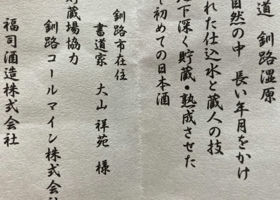 道 釧路湿原
自然の中 長い年月をかけ
れた仕込水と蔵人の技
下深く貯蔵・熟成させた
て初めての日本酒
釧路市在住
書道家 大山祥苑 様
貯蔵場協力
釧路コールマイン株式会社
福司酒造株式会社